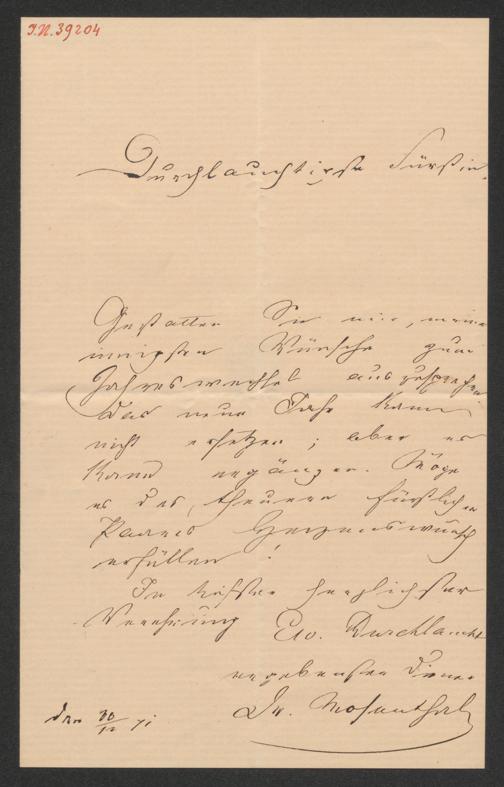 I.N. 39204
Durchlauchtigste Fürstin.
Gestatten Sie mir, meine
innigsten Wünsche zum
Jahreswechsel auszusprechen
Das neue Jahr kann
nicht ersetzen; aber es
kann ergänzen. Möge
es des theuern fürstlichen
Paares Herzenswunsch
erfüllen!
In tiefster herzlichster
Verehrung Ew. Durchlaucht
ergebenster Diener
Dr. Mosenthal
den 30/12 71